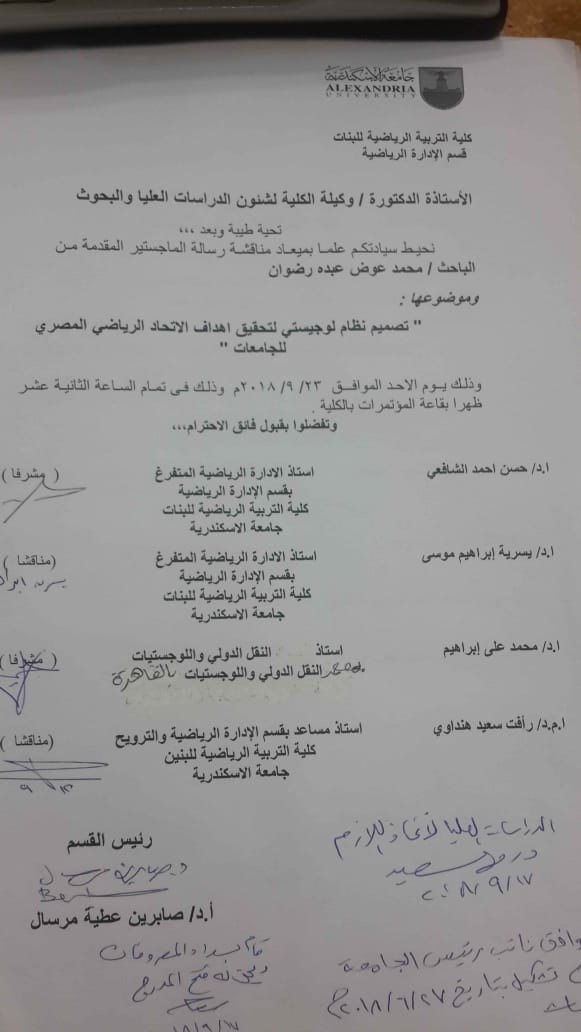 جامعة الإسكندرية
ALEXANDRIA
UNIVERSITY
كلية التربية الرياضية للبنات
قسم الإدارة الرياضية
الأستاذة الدكتورة / وكيلة الكلية لشئون الدراسات العليا والبحوث
تحية طيبة وبعد ،،،
نحيط سيادتكم علما بميعاد مناقشة رسالة الماجستير المقدمة من
الباحث / محمد عوض عبده رضوان
وموضوعها :
" تصميم نظام لوجيستي لتحقيق اهداف الاتحاد الرياضي المصري
للجامعات "
وذلك يوم الاحد الموافق ٢٣ /٩ /٢٠١٨م وذلك فى تمام الساعة الثانية عشر
ظهرا بقاعة المؤتمرات بالكلية .
وتفضلوا بقبول فائق الاحترام،،،
ا.د/ حسن احمد الشافعي
استاذ الادارة الرياضية المتفرغ
( مشرفا )
بقسم الإدارة الرياضية
كلية التربية الرياضية للبنات
جامعة الاسكندرية
ا.د/ يسرية إبراهيم موسى
استاذ الادارة الرياضية المتفرغ
(مناقشا )
بقسم الإدارة الرياضية
يسرية
كلية التربية الرياضية للبنات
جامعة الاسكندرية
ا.د/ محمد على إبراهيم
استاذ النقل الدولي واللوجستيات
( مشرفا )
النقل الدولي واللوجستيات بالقاهرة
ا.م.د/ رأفت سعيد هنداوي
استاذ مساعد بقسم الإدارة الرياضية والترويح
(مناقشا )
كلية التربية الرياضية للبنين
جامعة الاسكندرية
الدراسات العليا لاتخاذ اللازم
٢٠١٨/٩/١٧
رئيس القسم
أ.د/ صابرين عطية مرسال
قام بسداد المصروفات
نائب رئيس الجامعة
تشكيل بتاريخ ٢٠١٨/٦/٢٧م